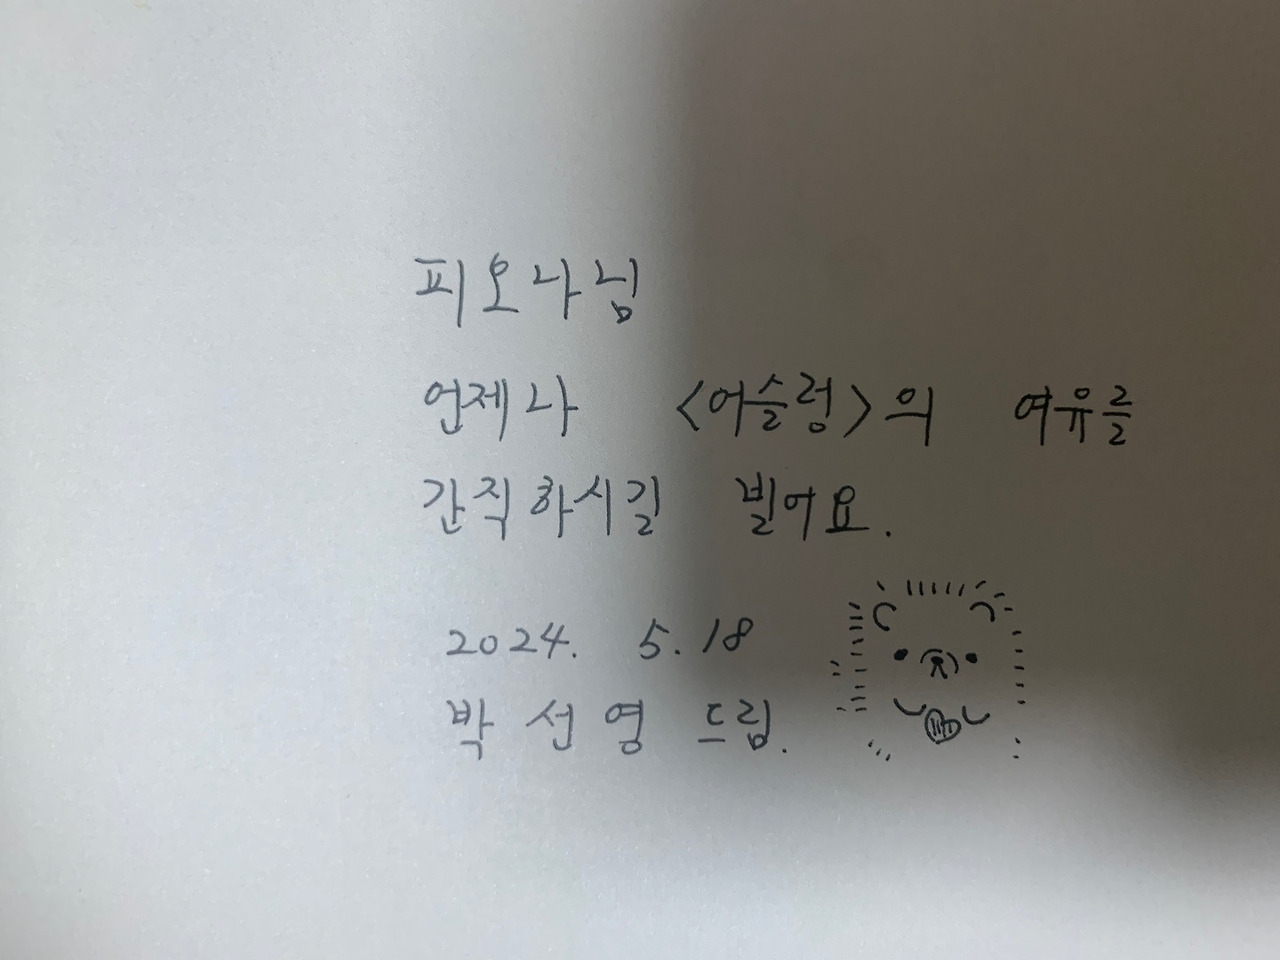 피오나님
언제나 <어슬렁>의 여유를
간직하시길 빌어요.
2024. 5. 18
박선영 드림.